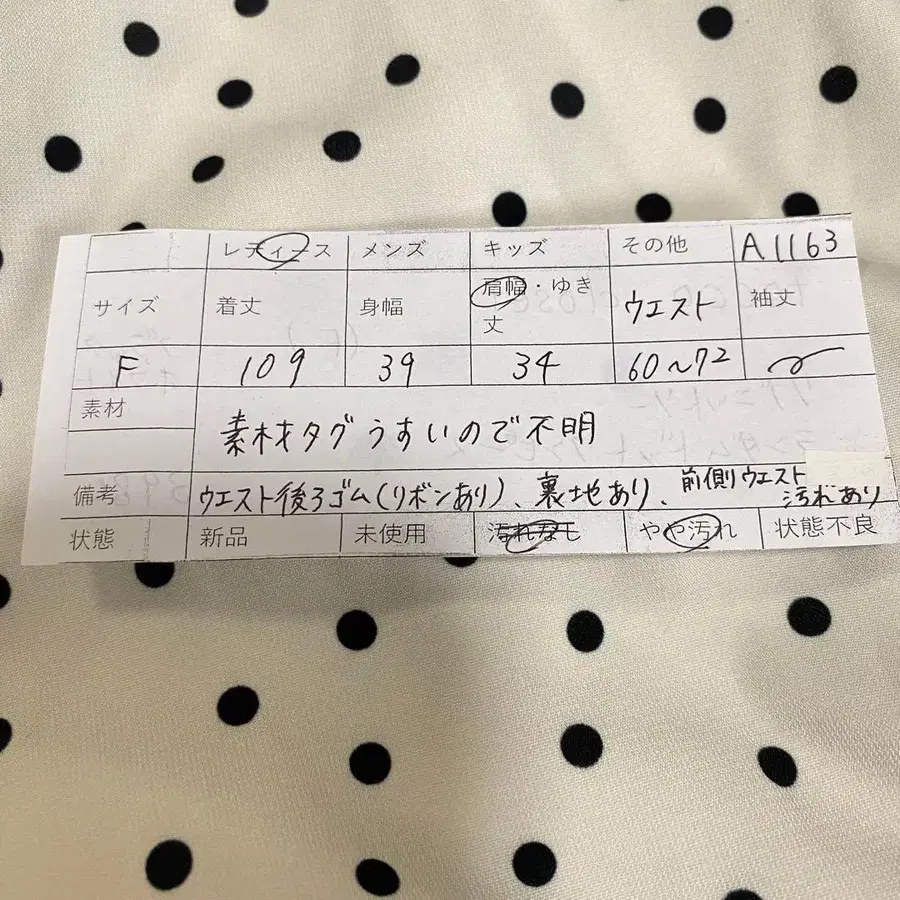 レディース メンズ キッズ その他 A1163
サイズ 着丈 身幅 肩幅・ゆき丈 ウエスト 袖丈
F 109 39 34 60〜72
素材 素材タグうすいので不明
備考 ウエスト後ろゴム(リボンあり)、裏地あり、前側ウエスト汚れあり
状態 新品 未使用 汚れなし やや汚れ 状態不良